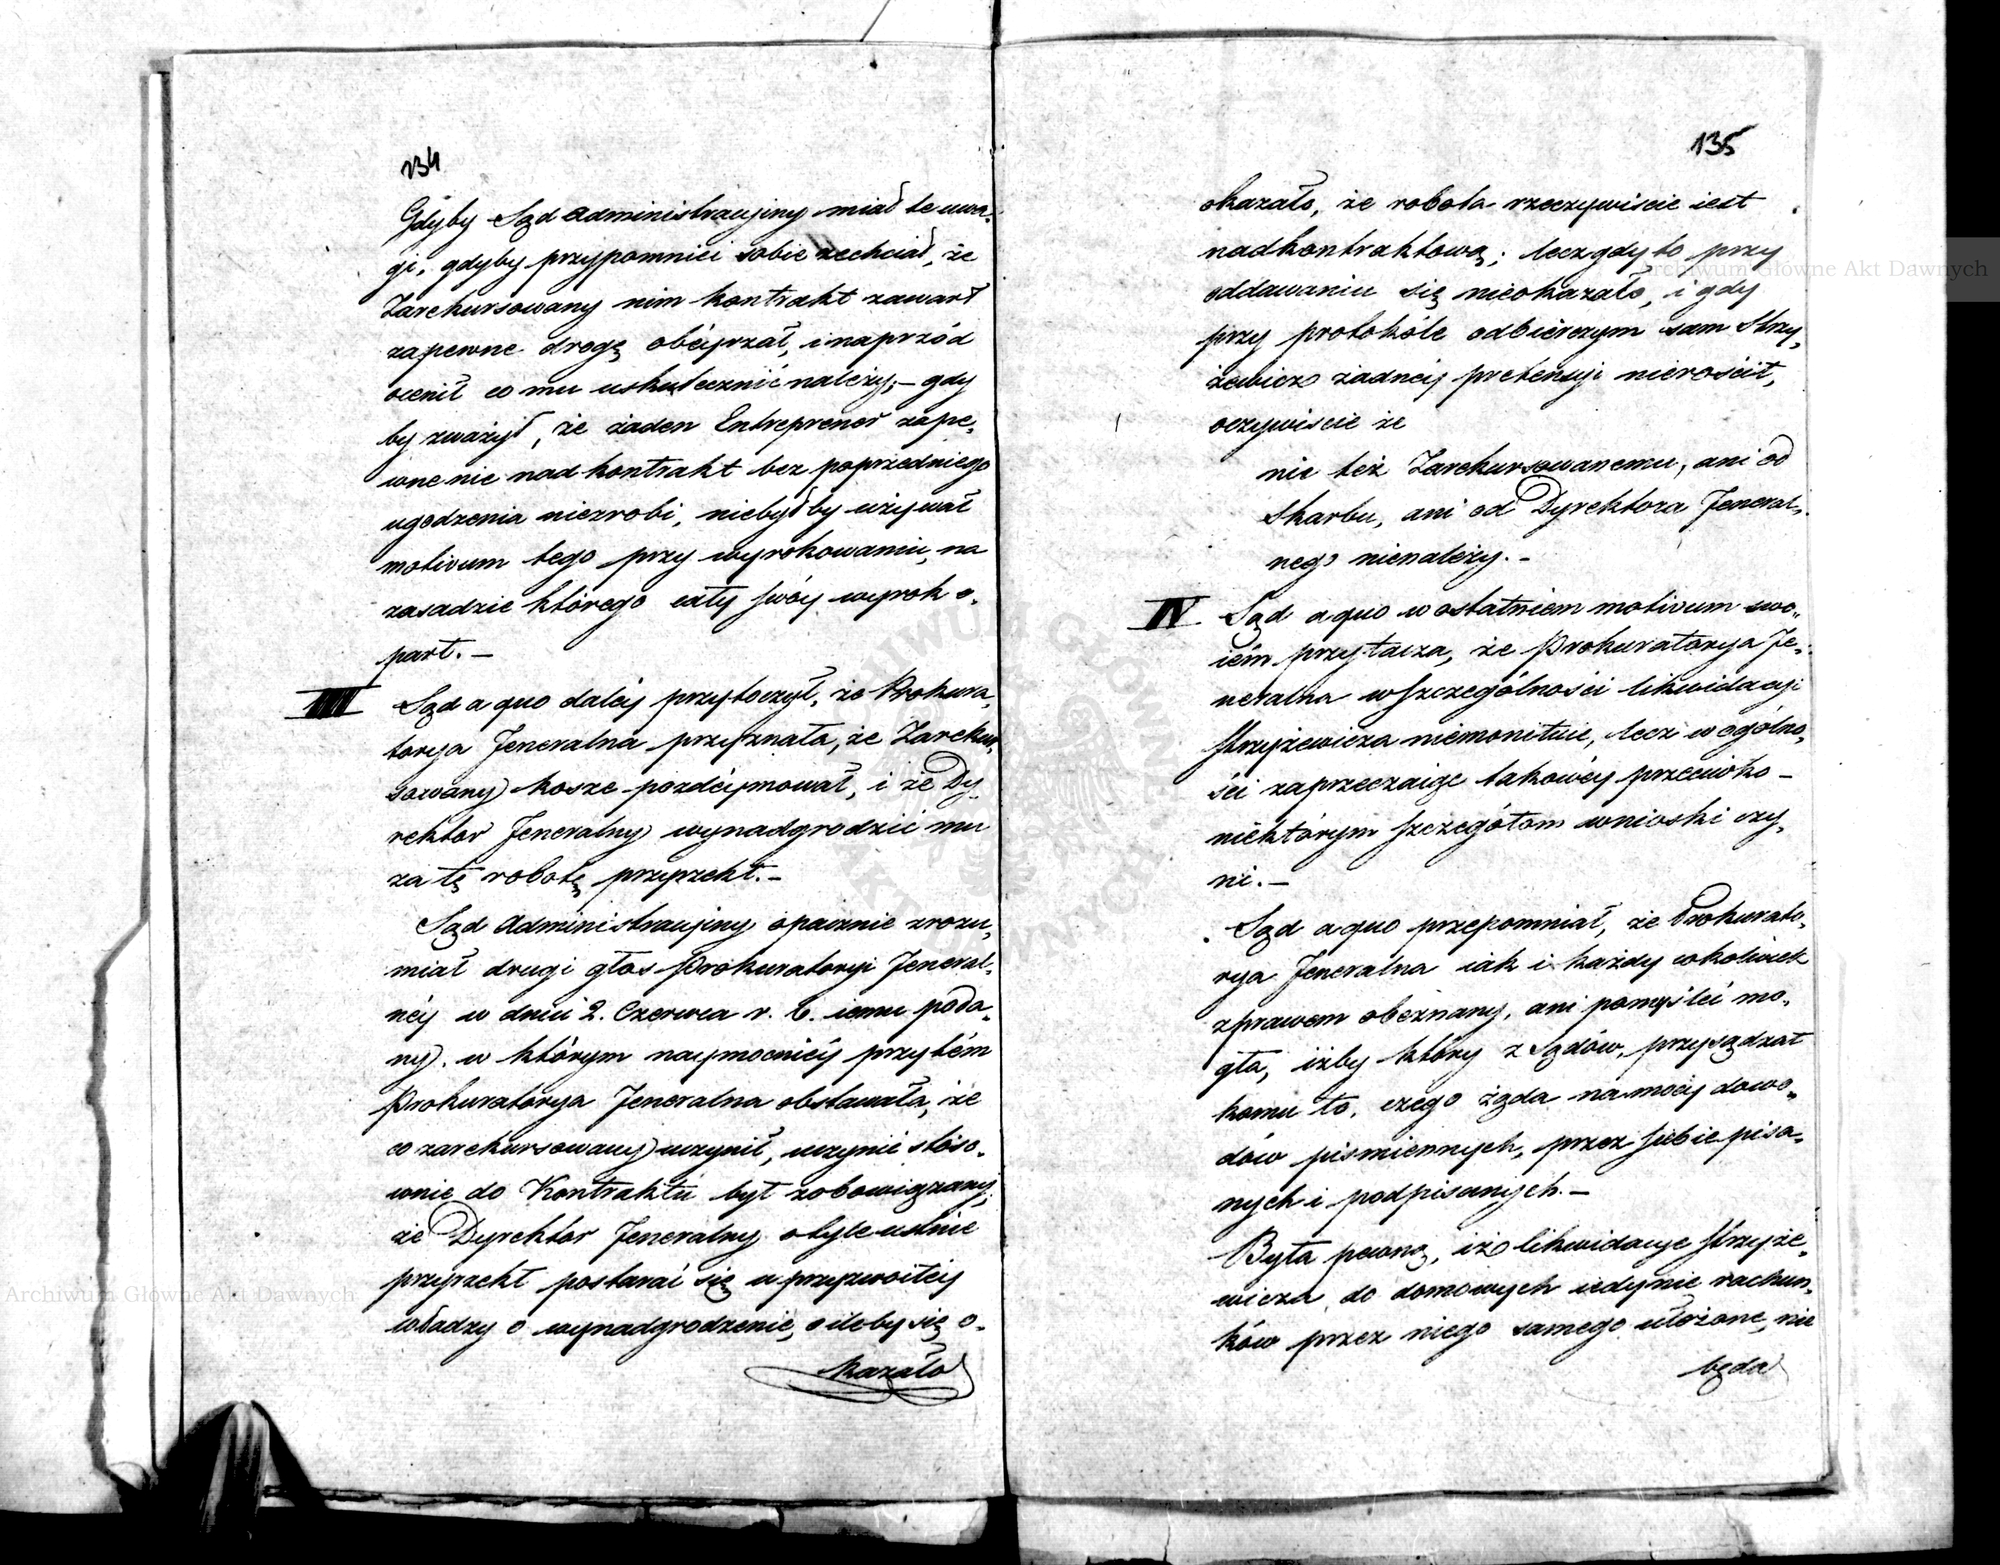 134
Gdyby Sąd Administracyiny miał te uwa-
gi, gdyby przypomnieć sobie zechciał, że
Zarekursowany nim kontrakt zawarł
zapewne drogę obéyrzał, i naprzód
ocenił co mu uskutecznić należy, – gdy
by zważył, że żaden Entreprener zape-
wne nic nad kontrakt bez poprzedniego
ugodzenia niezrobi, niebyłby używał
motivum tego przy wyrokowaniu, na
zasadzie którego cały swóy wyrok o-
parł. –
III Sąd a quo daléy przytoczył, że Prokura-
torya Jeneralna przyznała, że Zarekur-
sowany kosze pozdéymował, i że Dy-
rektor Jeneralny wynadgrodzić mu
za tę robotę przyrzekł. –
Sąd Administracyiny opacznie zrozu-
miał drugi głos Prokuratoryi Jeneral-
néy w dniu 2. Czerwca r. b. iemu poda-
ny, w którym naymocniéy przytém
Prokuratorya Jeneralna obstawała, że
co zarekursowany uczynił, uczynić stóso-
wnie do Kontraktu był zobowiązany,
że Dyrektor Jeneralny o tyle ustnie
przyrzekł postarać się u przyzwoitéy
władzy o wynadgrodzenie, o ileby się o-
kazało
135
okazało, że robota rzeczywiscie iest
nadkontraktową; lecz gdy to przy
oddawaniu się nieokazało, i gdy
przy protokóle odbiérczym sam Strzy-
żewicz żadnéy pretensyi nierościł,
oczywiscie że
nic też Zarekursowanemu, ani od
Skarbu, ani od Dyrektora Jeneral-
nego nienależy. –
IV Sąd a quo w ostatniem motivum swo-
iém przytacza, że Prokuratorya Je-
neralna w szczególności likwidacyi
Strzyżewicza niemonituie, lecz w ogólno-
ści zaprzeczaiąc takowéy przeciwko –
niektórym szczegółom wnioski czy-
ni. –
Sąd a quo przepomniał, że Prokurato-
rya Jeneralna iak i każdy cokolwiek
z prawem obeznany, ani pomyśleć mo-
gła, iżby który z Sądów, przysądzał
komu to, czego żąda na mocy dowo-
dów pismiennych, przez siebie pisa-
nych i podpisanych. –
Była pewną, iż likwidacye Strzyże-
wicza, do domowych iedynie rachun-
ków przez niego samego ułożone, nie
będą
Archiwum Główne Akt Dawnych
Archiwum Główne Akt Dawnych